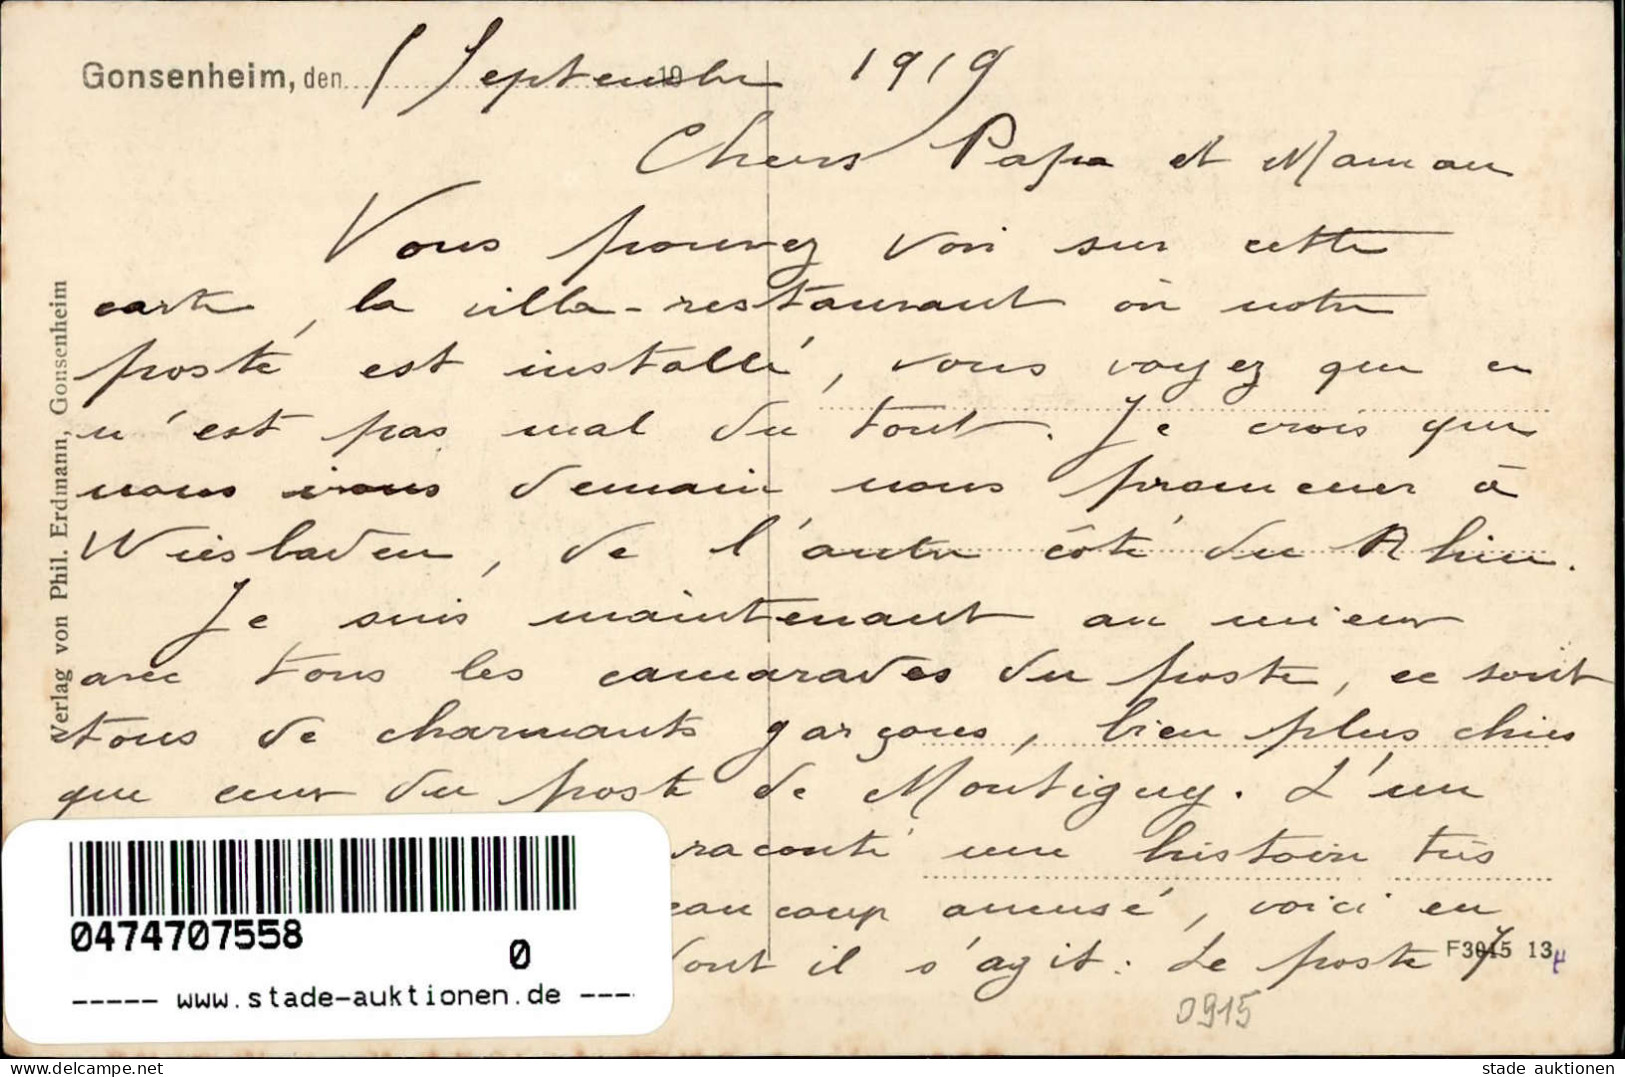 Gonsenheim, den 1 Septembre 1919
Chers Papa et Maman
Vous pouvez voir sur cette
carte, la villa-restaurant où notre
poste est installé, vous voyez que ce
n'est pas mal du tout. Je crois que
nous irons demain nous promener à
Wiesbaden, de l'autre côté du Rhin.
Je suis maintenant au mieux
avec tous les camarades du poste, ce sont
tous de charmants garçons, bien plus chics
que ceux du poste de Montigny. L'un
raconté une histoire très
eaucoup amusé, voici en
dont il s'agit : Le poste
F3015 13
0915
Verlag von Phil. Erdmann, Gonsenheim
0474707558
0
----- www.stade-auktionen.de ---
stade auktionen